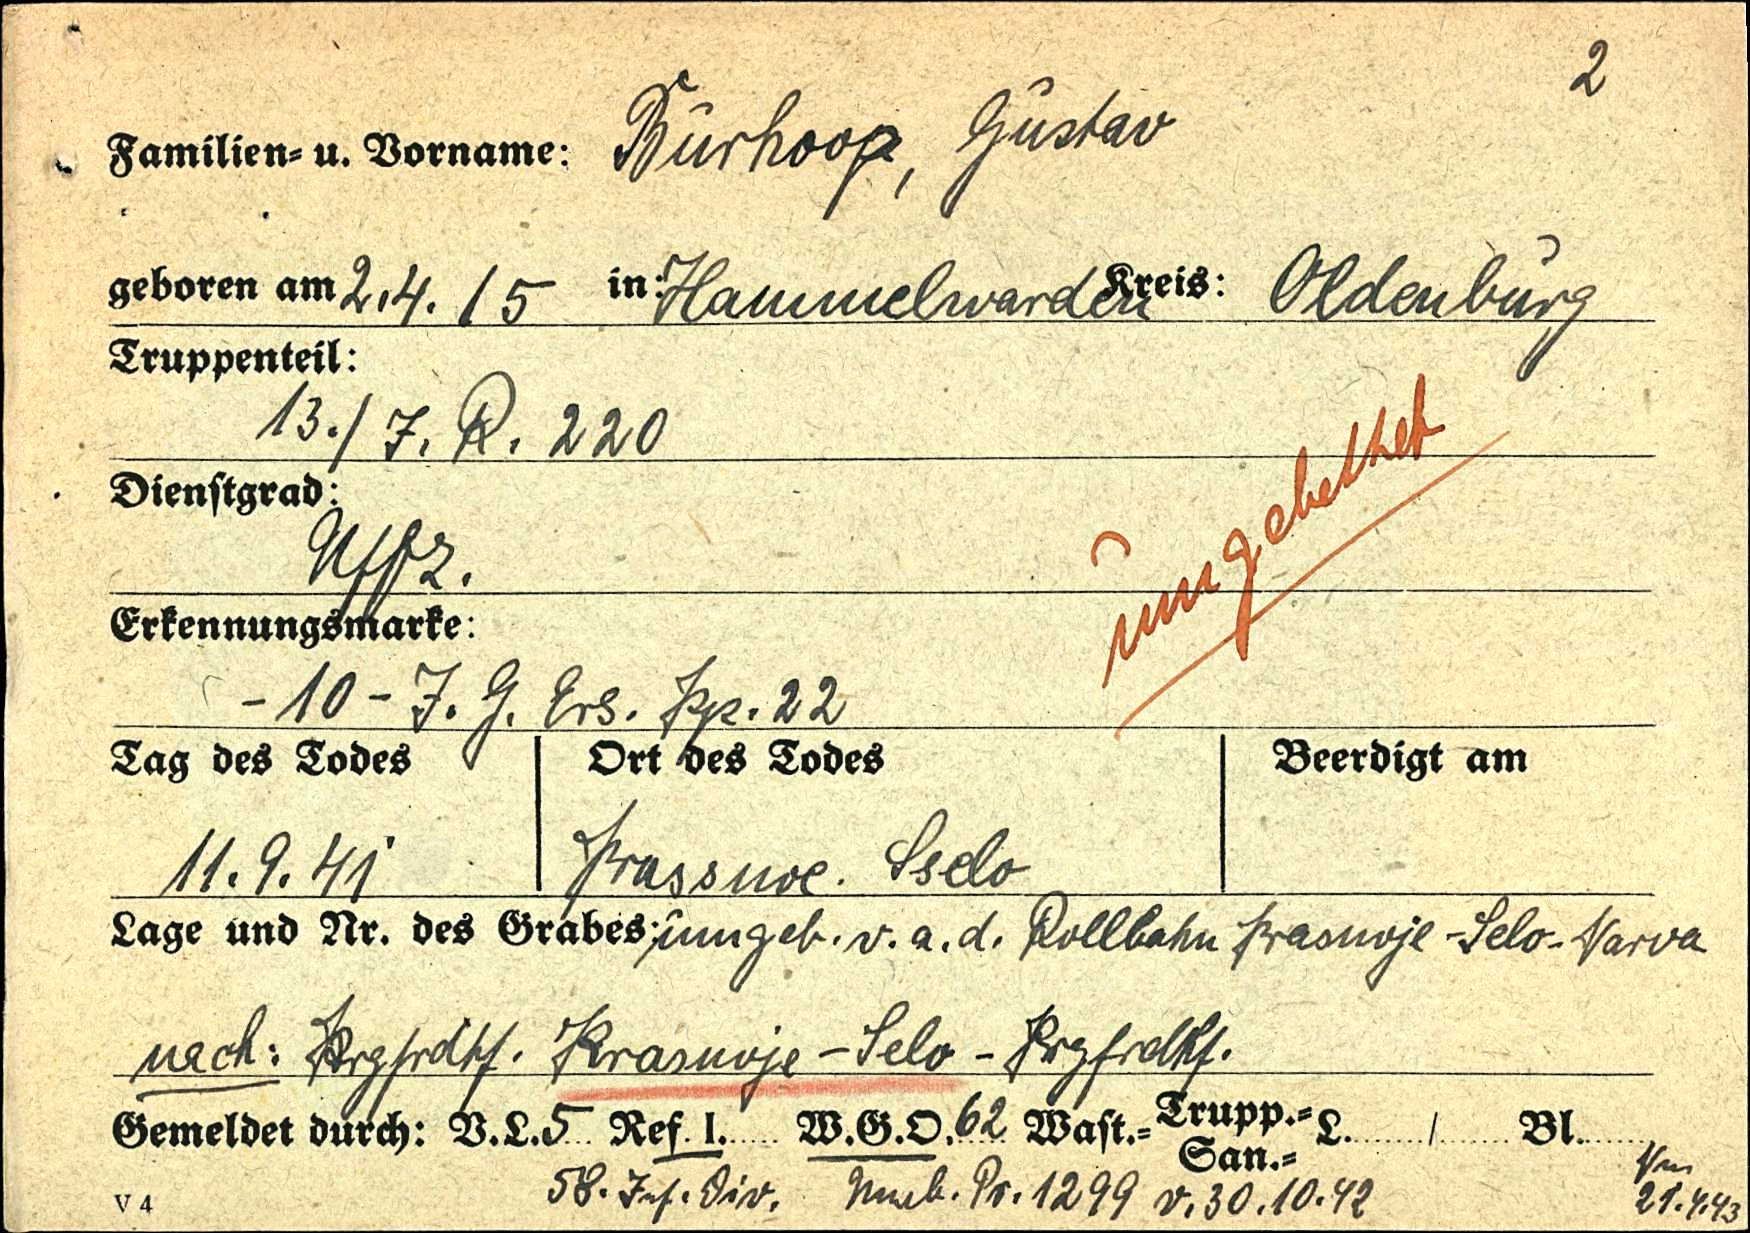 2
Familien= u. Vorname: Burhoop, Gustav
geboren am 2.4.15 in: Hammelwarden Kreis: Oldenburg
Truppenteil:
13./ J. R. 220
Dienstgrad:
Uffz.
umgebettet
Erkennungsmarke:
- 10 - J. G. Ers. Kp. 22
Tag des Todes Ort des Todes Beerdigt am
11.9.41 Krassnoe. Sselo
Lage und Nr. des Grabes: umgeb. v. a. d. Rollbahn Krasnoje-Selo-Narva
nach: Krgfrdhf. Krasnoje-Selo - Krgfrdhf.
Gemeldet durch: V.L. 5 Ref. I. W.G.O. 62 Wast.= Trupp.= San.= L. / Bl.
58. Inf. Div. Umb. Pr. 1299 v. 30.10.42
21.4.43
V 4